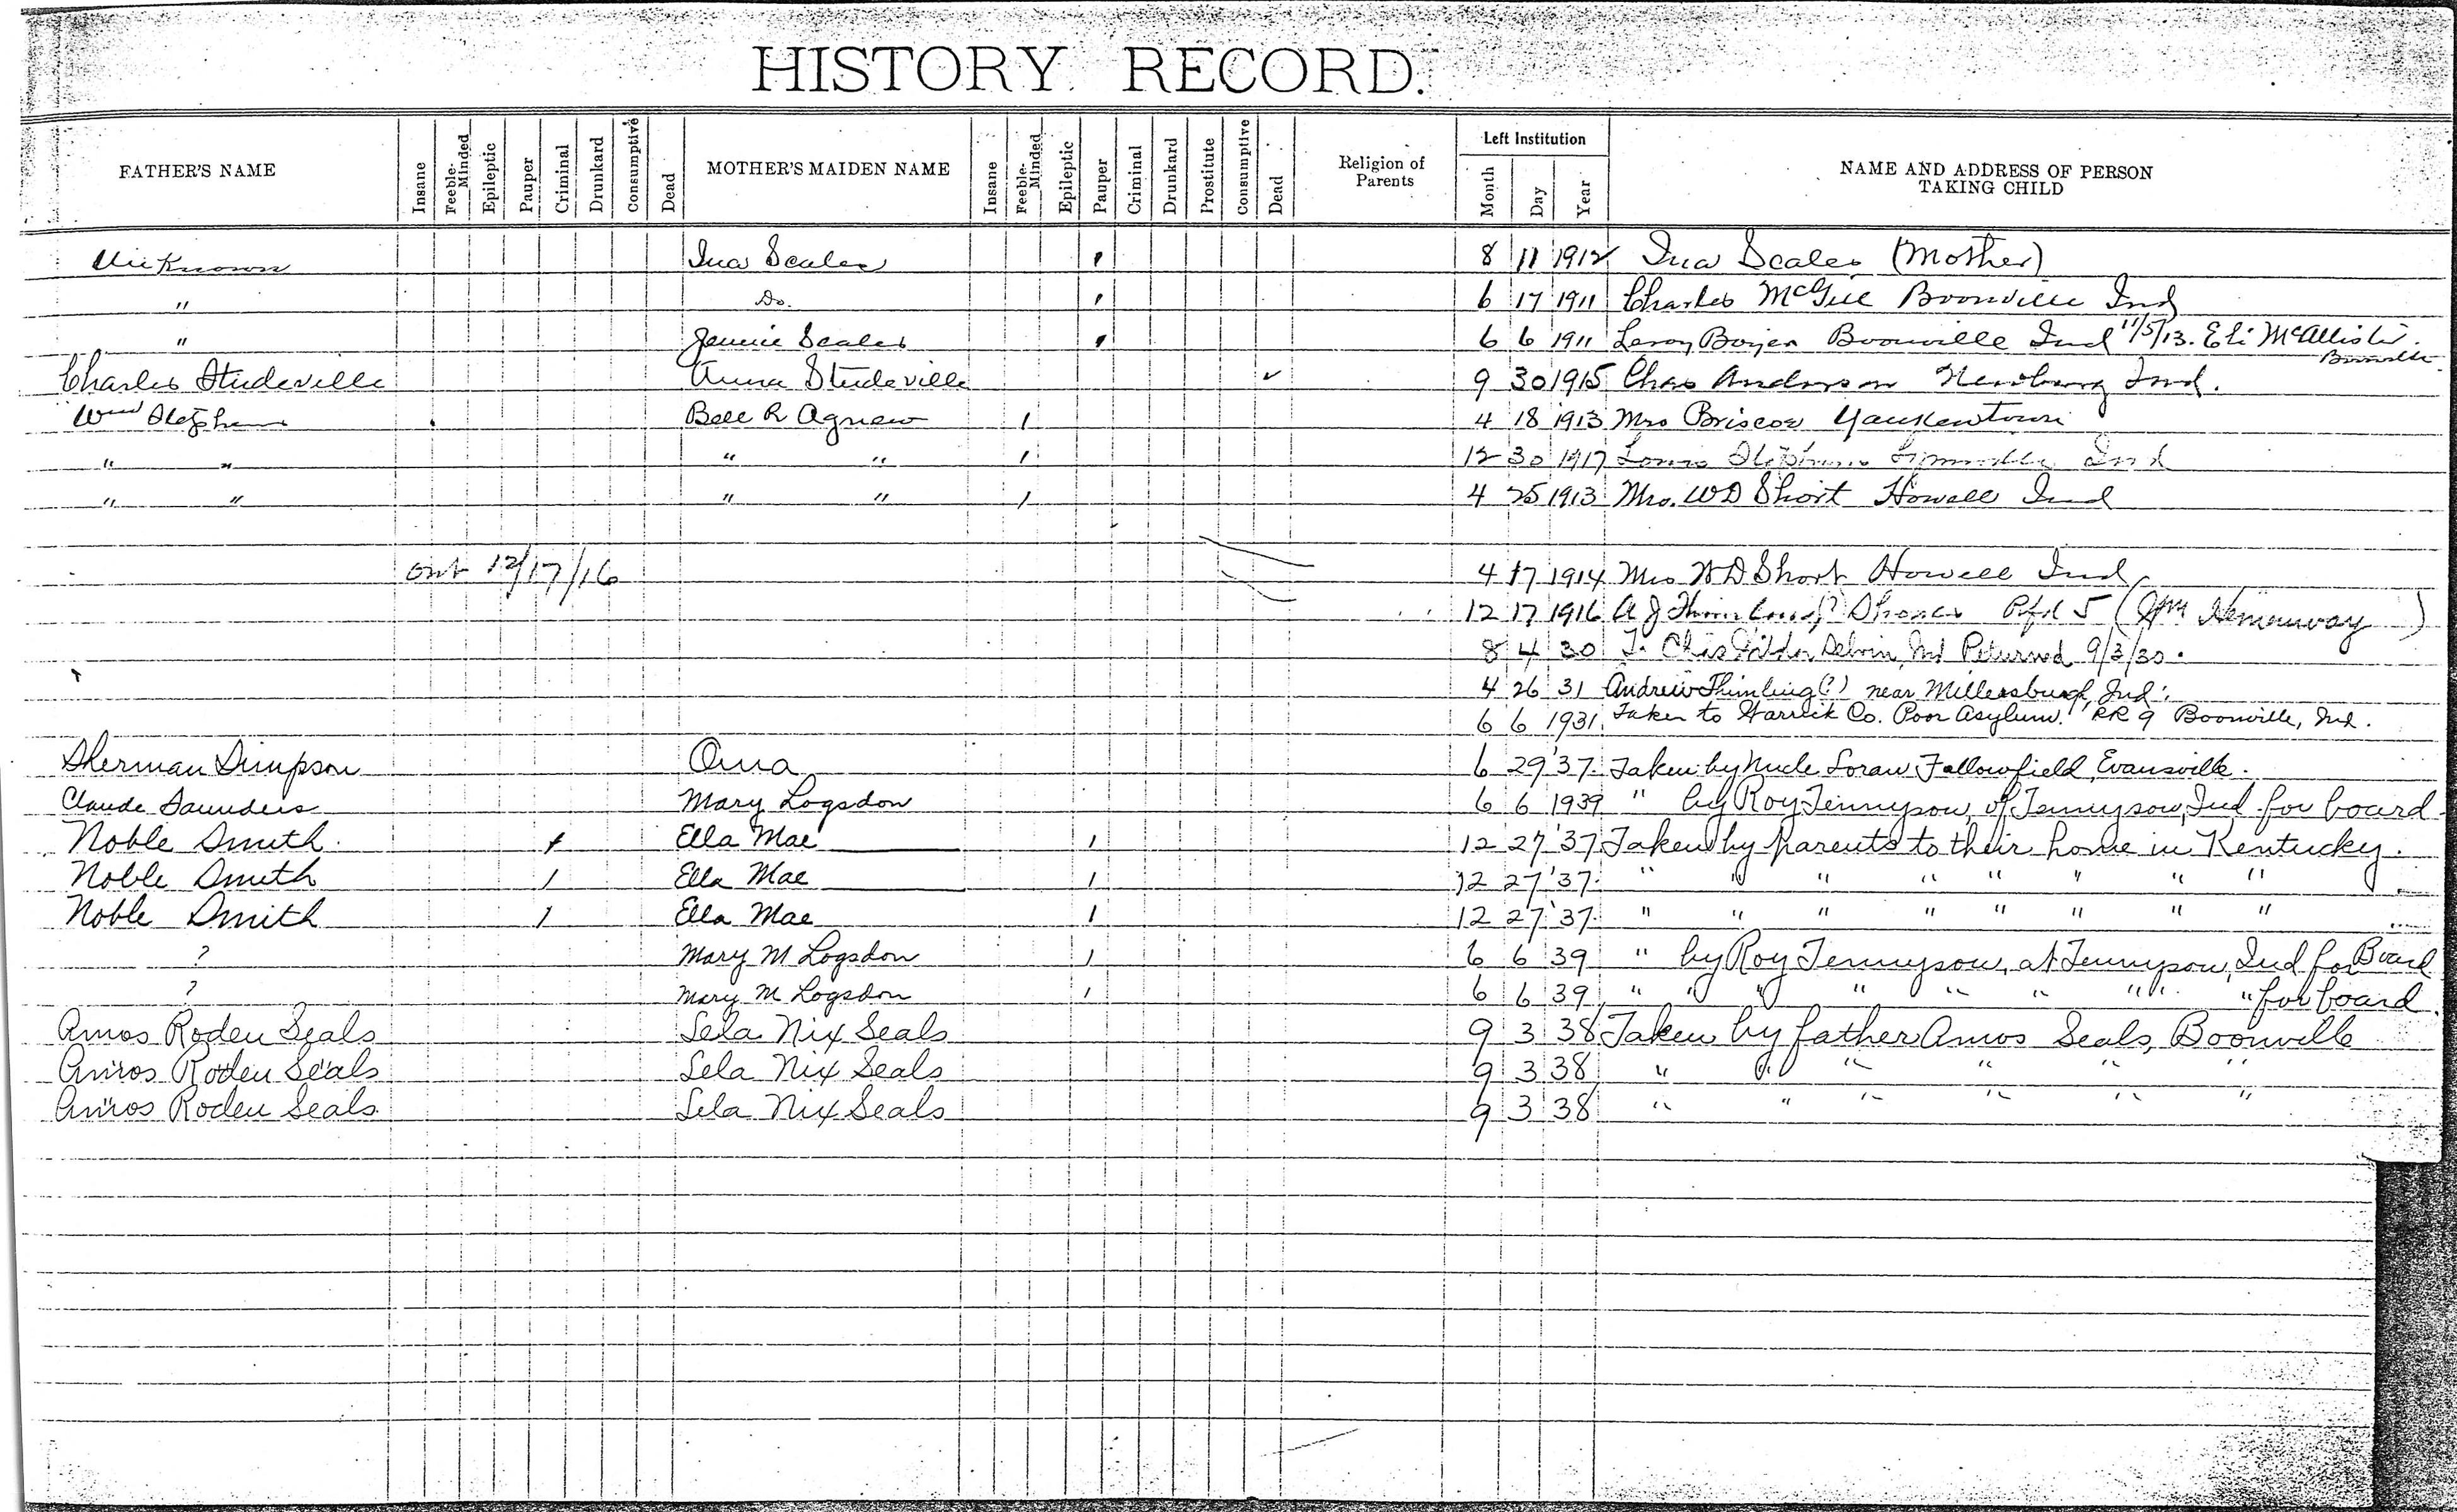 HISTORY RECORD.
FATHER'S NAME Insane Feeble-Minded Epileptic Pauper Criminal Drunkard Consumptive Dead MOTHER'S MAIDEN NAME Insane Feeble-Minded Epileptic Pauper Criminal Drunkard Prostitute Consumptive Dead Religion of Parents Left Institution Month Day Year NAME AND ADDRESS OF PERSON TAKING CHILD
Unknown Ina Scales ' 8 11 1912 Ina Scales (Mother)
" Do. ' 6 17 1911 Charles Boonville Ind
" Jennie Scales ' 6 6 1911 Leroy Boyer Boonville Ind 11/5/13. Eli McAllister. Boonville
Charles Studeville Anna Studeville ✓ 9 30 1915 Chas Anderson Newburg Ind.
Wm Stephens Bell R Agnew / 4 18 1913 Mrs Briscoe Yankeetown
" " " " / 12 30 1917 Ind
" " " " / 4 25 1913 Mrs. WD Short Howell Ind
out 12/17/16 4 17 1914 Mrs WD Short Howell Ind
12 17 1916 A J Rfd 5 (Wm Hemenway)
8 4 30 Ind Returned 9/3/30.
4 26 31 Andrew Thimling(?) near Millersburgh, Ind.
6 6 1931. Taken to Warrick Co. Poor Asylum. RR 9 Boonville, Ind.
Sherman Simpson Oma 6 29 '37. Taken by Uncle Loran Fallowfield, Evansville.
Claude Saunders Mary Logsdon 6 6 1939 " by Roy Tennyson, of Tennyson, Ind. for board.
Noble Smith. / Ella Mae ______ / 12 27 '37 Taken by parents to their home in Kentucky.
Noble Smith / Ella Mae ______ / 12 27 '37. " " " " " " " "
Noble Smith / Ella Mae ______ / 12 27 '37. " " " " " " " "
? Mary M Logsdon / 6 6 39 " by Roy Tennyson, at Tennyson, Ind for Board
? Mary M Logsdon / 6 6 39 " " " " " " " " " for board.
Amos Roden Seals Lela Nix Seals 9 3 38 Taken by father Amos Seals, Boonville
Amos Roden Seals Lela Nix Seals 9 3 38 " " " " " "
Amos Roden Seals Lela Nix Seals 9 3 38 " " " " " "